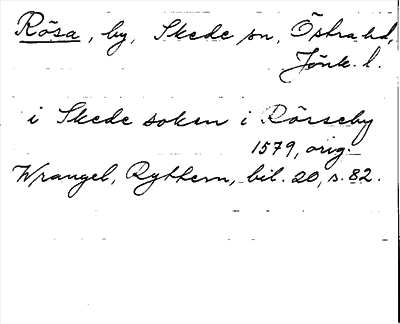 Rösa, by, Skede sn, Östra hd,
Jönk. l.
i Skede soken i Rösseby
1579, orig.
Wrangel, Rytthern, bil. 20, s. 82.